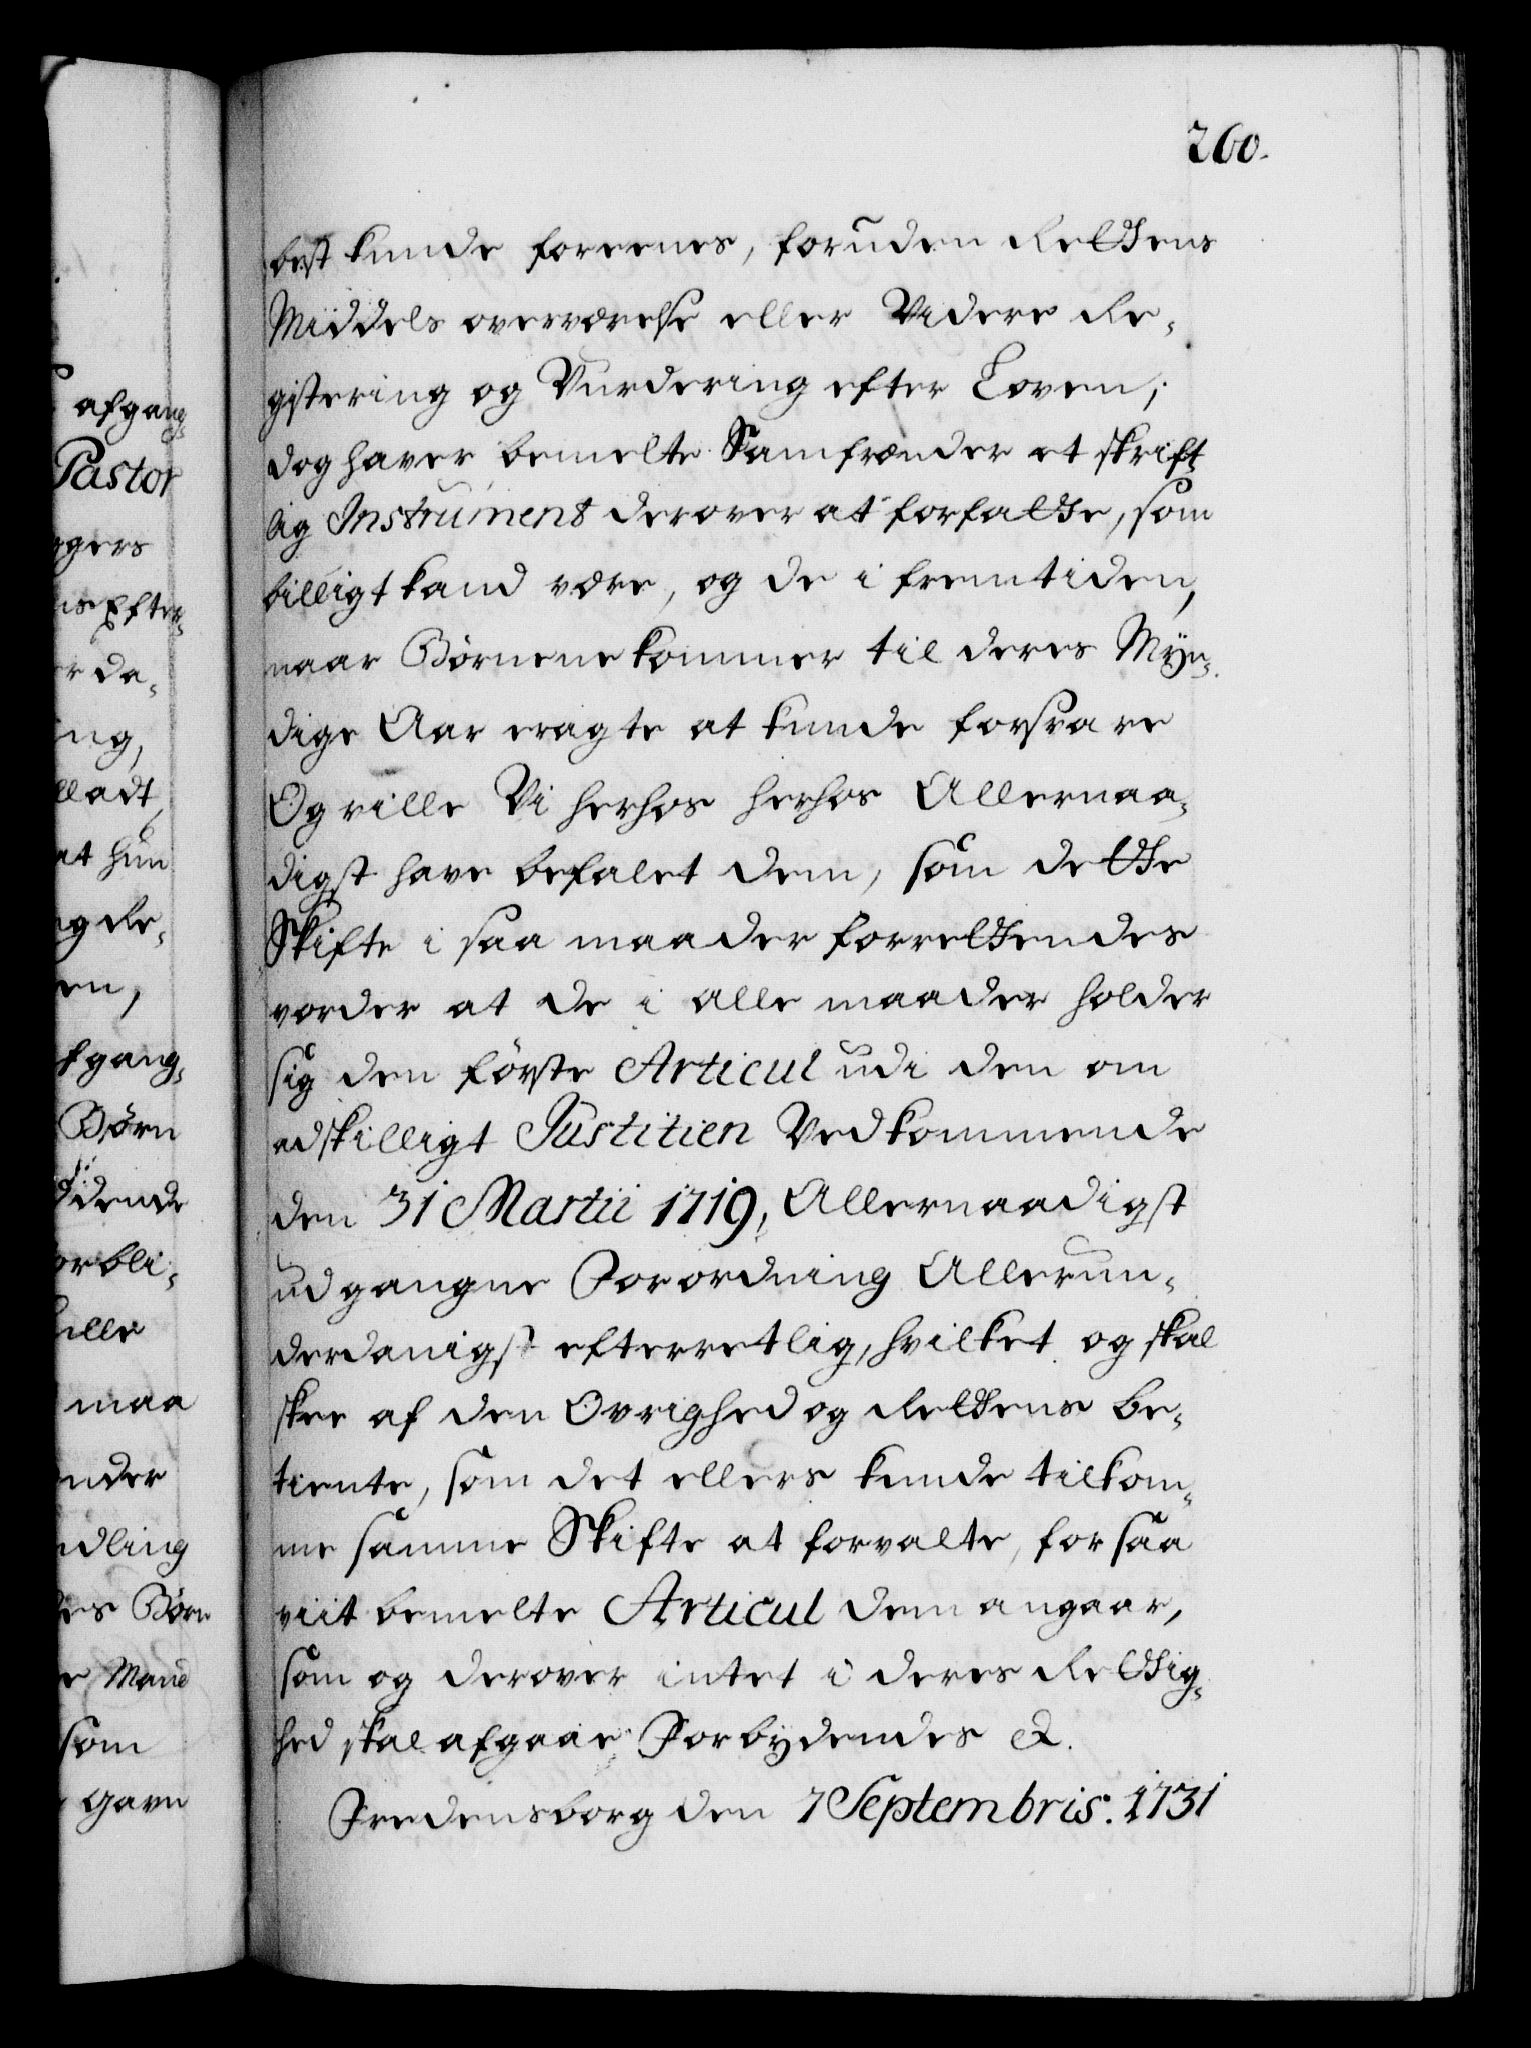 260.
best kunde foreenes, foruden Rettens
Middels overværelse eller Videre Re-
gistering og Vurdering efter Loven;
dog haver bemelte Samfrænder et skrift
lig Instrument derover at forfatte, som
billigt kand være, og de i fremtiden,
naar Børnene kommer til deres Myn-
dige Aar eragte at kunde forsvare
Og ville Vi herhos herhos Allernaa-
digst have befalet dem, som dette
Skifte i saa maader forrettendes
vorder at de i alle maader holder
sig den første Articul udi den om
adskilligt Justitien Vedkommende
den 31 Martii 1719, Allernaadigst
udgangne Forordning Allerun-
derdanigst efterretlig, hvilket og skal
skee af den Øvrighed og Rettens be-
tiente, som det ellers kunde tilkom-
me samme Skifte at forvalte, for saa
viit bemelte Articul dem angaar,
som og derover intet i deres Rettig-
hed skal afgaae Forbydendes &.
Fredensborg den 7 Septembris. 1731
afgang
Pastor
ggers
ns Efter-
er da-
ing,
lladt
at hun
og Re-
en,
fgang-
Børn
dende
or bli-
maa
nder
ndling
des Børn
e Mand
som
gavn